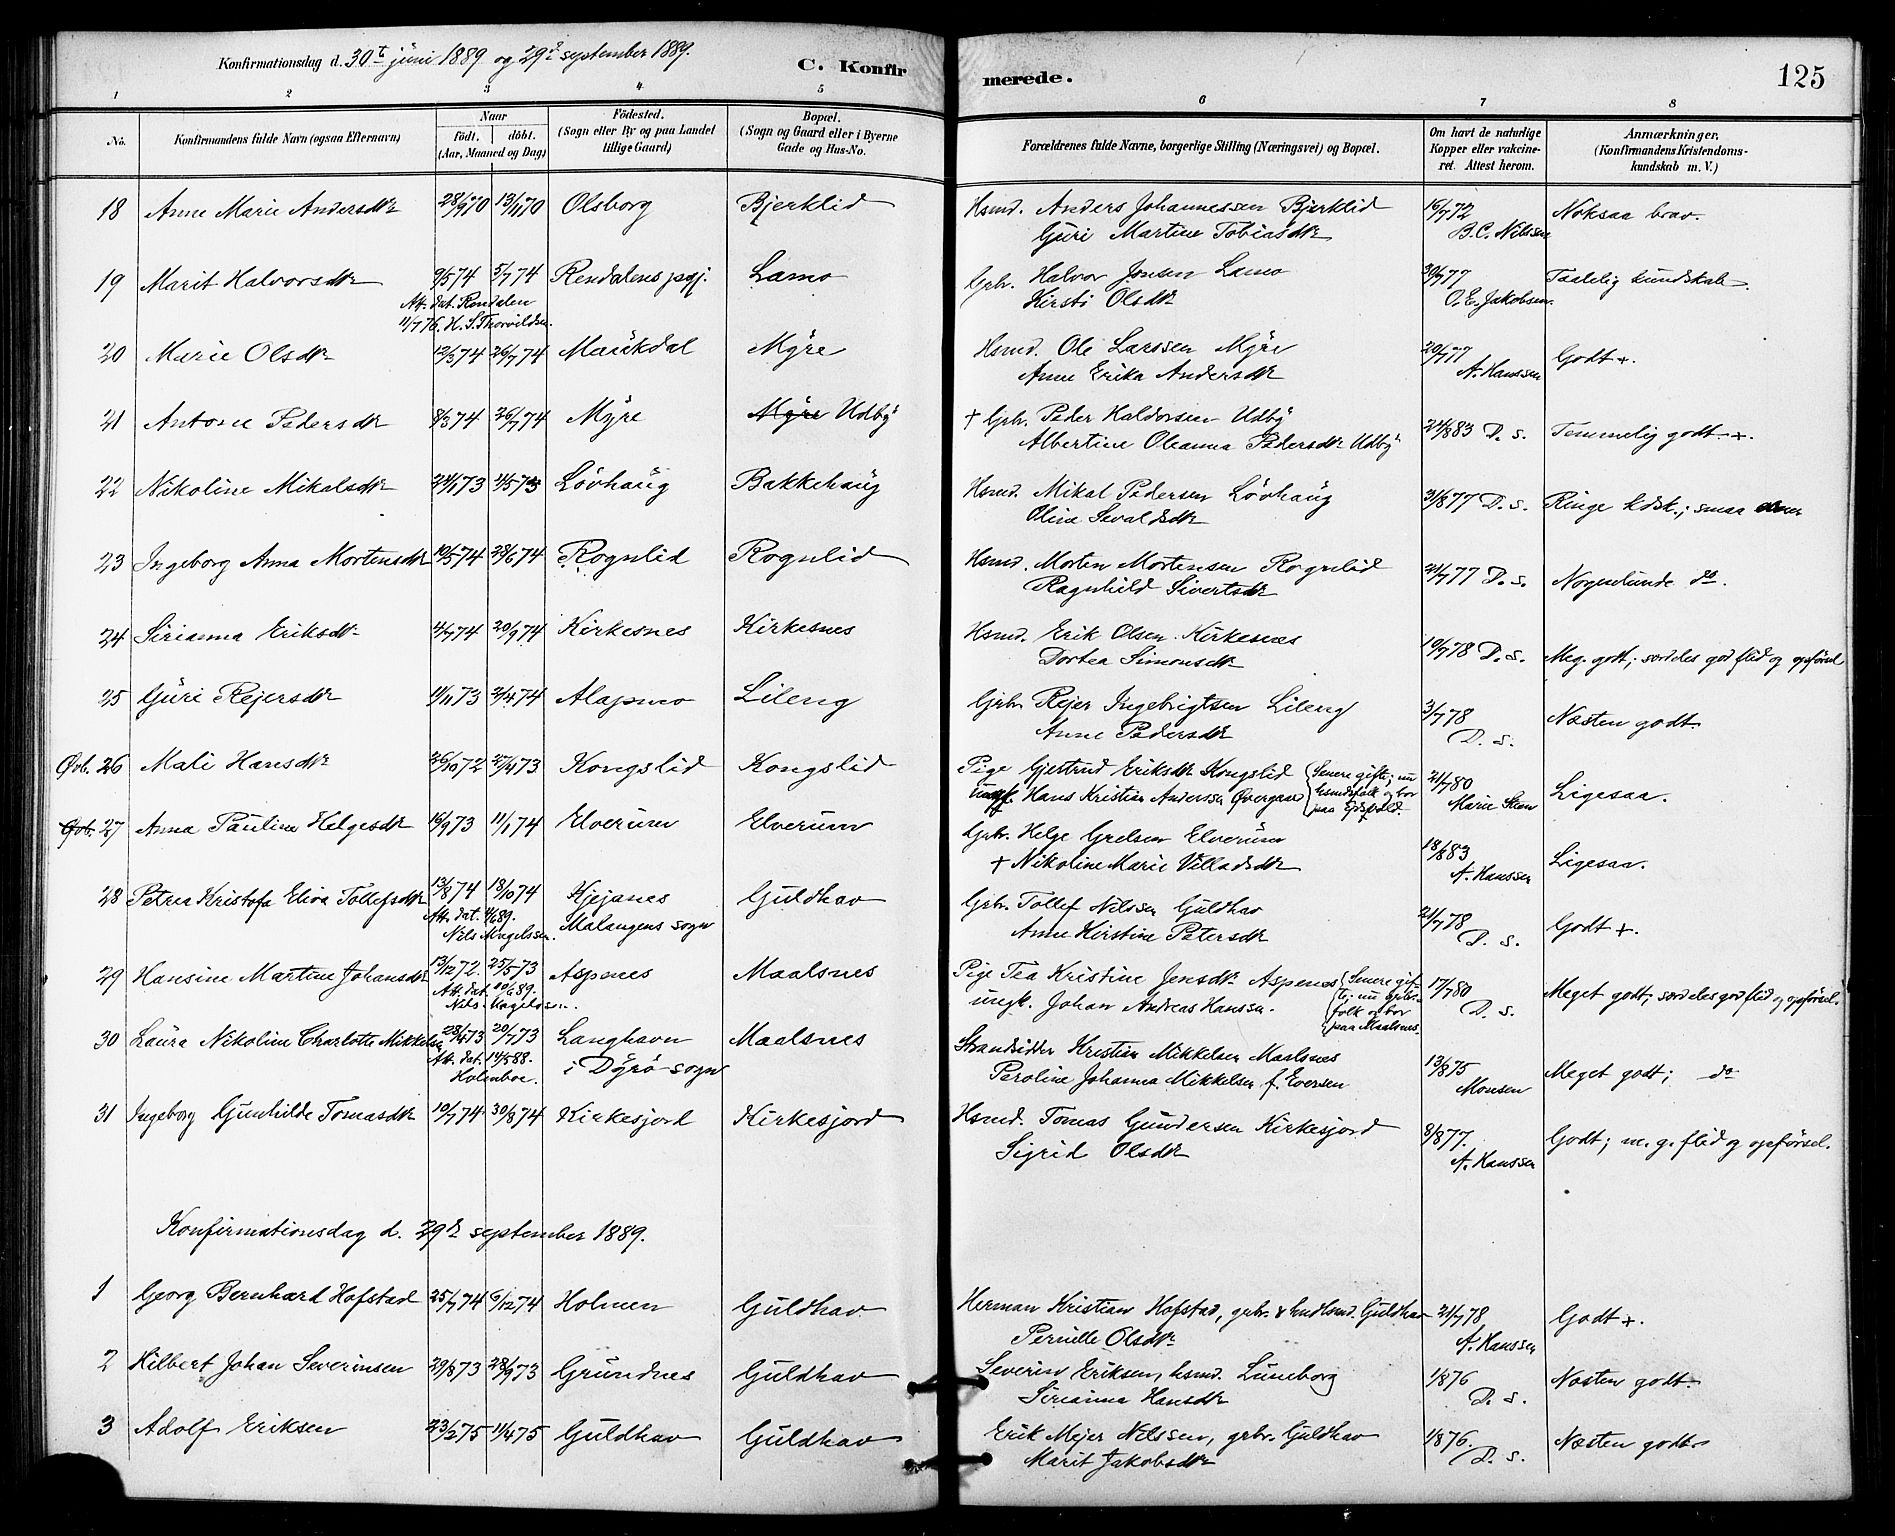 Konfirmationsdag d. 30t juni 1889 og 29d september 1889.
C. Konfirmerede.
125
1 2 3 4 5 6 7 8
No. Konfirmandens fulde Navn (ogsaa Efternavn) Naar født. døbt. (Aar, Maaned og Dag) Fødested. (Sogn eller By og paa Landet tillige Gaard) Bopæl. (Sogn og Gaard eller i Byerne Gade og Hus-No. Forældrenes fulde Navne, borgerlige Stilling (Næringsvei) og Bopæl. Om havt de naturlige Kopper eller vakcineret. Attest herom. Anmærkninger, (Konfirmandens Kristendomskundskab m. V.)
18 Anne Marie Andersdtr 28/9 70 13/11 70 Olsborg Bjerklid Hsmd. Anders Johannessen Bjerklid 16/7 72 Noksaa brav.
Guri Martine Tobiasdtr B.C. Nilssen
19 Marit Halvorsdtr 9/5 74 5/7 74 Rendalens pgj. Lamo Grbr. Halvor Jonsen Lamo 30/7 77 Taalelig kundskab.
Att. dat. Rendalen Kirsti Olsdtr O.E. Jakobsen
11/7 76. H. S. Thorvildsen.
20 Marie Olsdtr 12/3 74 26/7 74 Maukdal Myre Hsmd. Ole Larssen Myre 20/7 77 Godt +.
Anne Erika Andersdtr A. Hanssen
21 Antone Pedersdtr 8/3 74 26/7 74 Myre Myre Udby + Grbr. Peder Haldorsen Udby 24/8 83 D. s. Temmelig godt +.
Albertine Oleanna Pedersdtr Udby
22 Nikoline Mikalsdtr 24/1 73 4/5 73 Løvhaug Bakkehaug Hsmd. Mikal Pedersen Løvhaug 31/8 77 D. s. Ringe kdsk.; smaa evner
Oline Sevaldsdtr
23 Ingeborg Anna Mortensdtr 10/5 74 28/6 74 Rognlid Rognlid Hsmd. Morten Mortensen Rognlid 21/7 77 D. s. Nogenlunde do.
Ragnhild Sivertsdtr
24 Sirianna Eriksdtr 4/7 74 20/9 74 Kirkesnes Kirkesnes Hsmd. Erik Olsen Kirkesnes 10/7 78 D. s. Meg. godt; særdeles god flid og opførsel
Dortea Simonsdtr
25 Guri Rejersdtr 11/11 73 2/4 74 Alapmo Lileng Grbr. Rejer Ingebrigtsen Lileng 3/7 78 Næsten godt.
Anne Pedersdtr D. s.
Øvb. 26 Mali Hansdtr 26/10 72 27/4 73 Kongslid Kongslid Pige Gjertrud Eriksdtr Kongslid Senere gifte; nu 21/7 80 Ligesaa.
ungk. Hans Kristian Anderssen Øvergaard husmdsfolk og bor Marie Steen
paa Ejdsfjeld.
Øvb. 27 Anna Pauline Helgesdtr 16/9 73 11/1 74 Elverum Elverum Grbr. Helge Grelsen Elverum 18/8 83 Ligesaa.
+ Nikoline Marie Villadsdtr A. Hanssen
28 Petrea Kristofa Eliva Tollefsdtr 13/8 74 18/10 74 Kjejanes Guldhav Grbr. Tollef Nilssen Guldhav 21/7 78 Godt +.
Att. dat. 4/6 89. Malangens sogn Anne Kirstine Petersdtr D. s.
Nils Mageldsen.
29 Hansine Martine Johansdtr 13/12 72. 25/5 73 Aspenes Maalsnes Pige Tea Kristine Jensdtr Aspenes Senere gif- 17/7 80 Meget godt; særdeles god flid og opførsel.
Att. dat. 10/6 89. ungk. Johan Andreas Hanssen. te; nu grbr.- D. s.
Nils Mageldsen. folk og bor
paa Maalsnes.
30 Laura Nikoline Charlotte Mikkelsen 28/4 73 20/7 73 Langhavn Maalsnes Strandsidder Kristian Mikkelsen Maalsnes 13/8 75 Meget godt; do
Att. dat. 14/5 88. i Dyrø sogn Peroline Johanna Mikkelsen f. Evensen Monsen
Holmboe.
31 Ingeborg Gunhilde Tomasdtr 10/7 74 30/8 74 Kirkesjord Kirkesjord Hsmd. Tomas Gundersen Kirkesjord 8/8 77. Godt; m. g. flid og opførsel.
Sigrid Olsdtr A. Hanssen
Konfirmationsdag d. 29d september 1889.
1 Georg Bernhard Hofstad 25/7 74 6/12 74 Holmen Guldhav Herman Kristian Hofstad, grbr. & hndlsmd. Guldhav 21/7 78 Godt +.
Pernille Olsdtr A. Hanssen
2 Hilbert Johan Severinsen 29/8 73 28/9 73 Grundnes Guldhav Severin Eriksen, hsmd. Luneborg 1/8 76 Næsten godt.
Sirianna Hansdtr D. s.
3 Adolf Eriksen 23/2 75 11/4 75 Guldhav Guldhav Erik Mejer Nilssen, grbr. Guldhav 1/8 76. Næsten godt
Marit Jakobsdtr D. s.